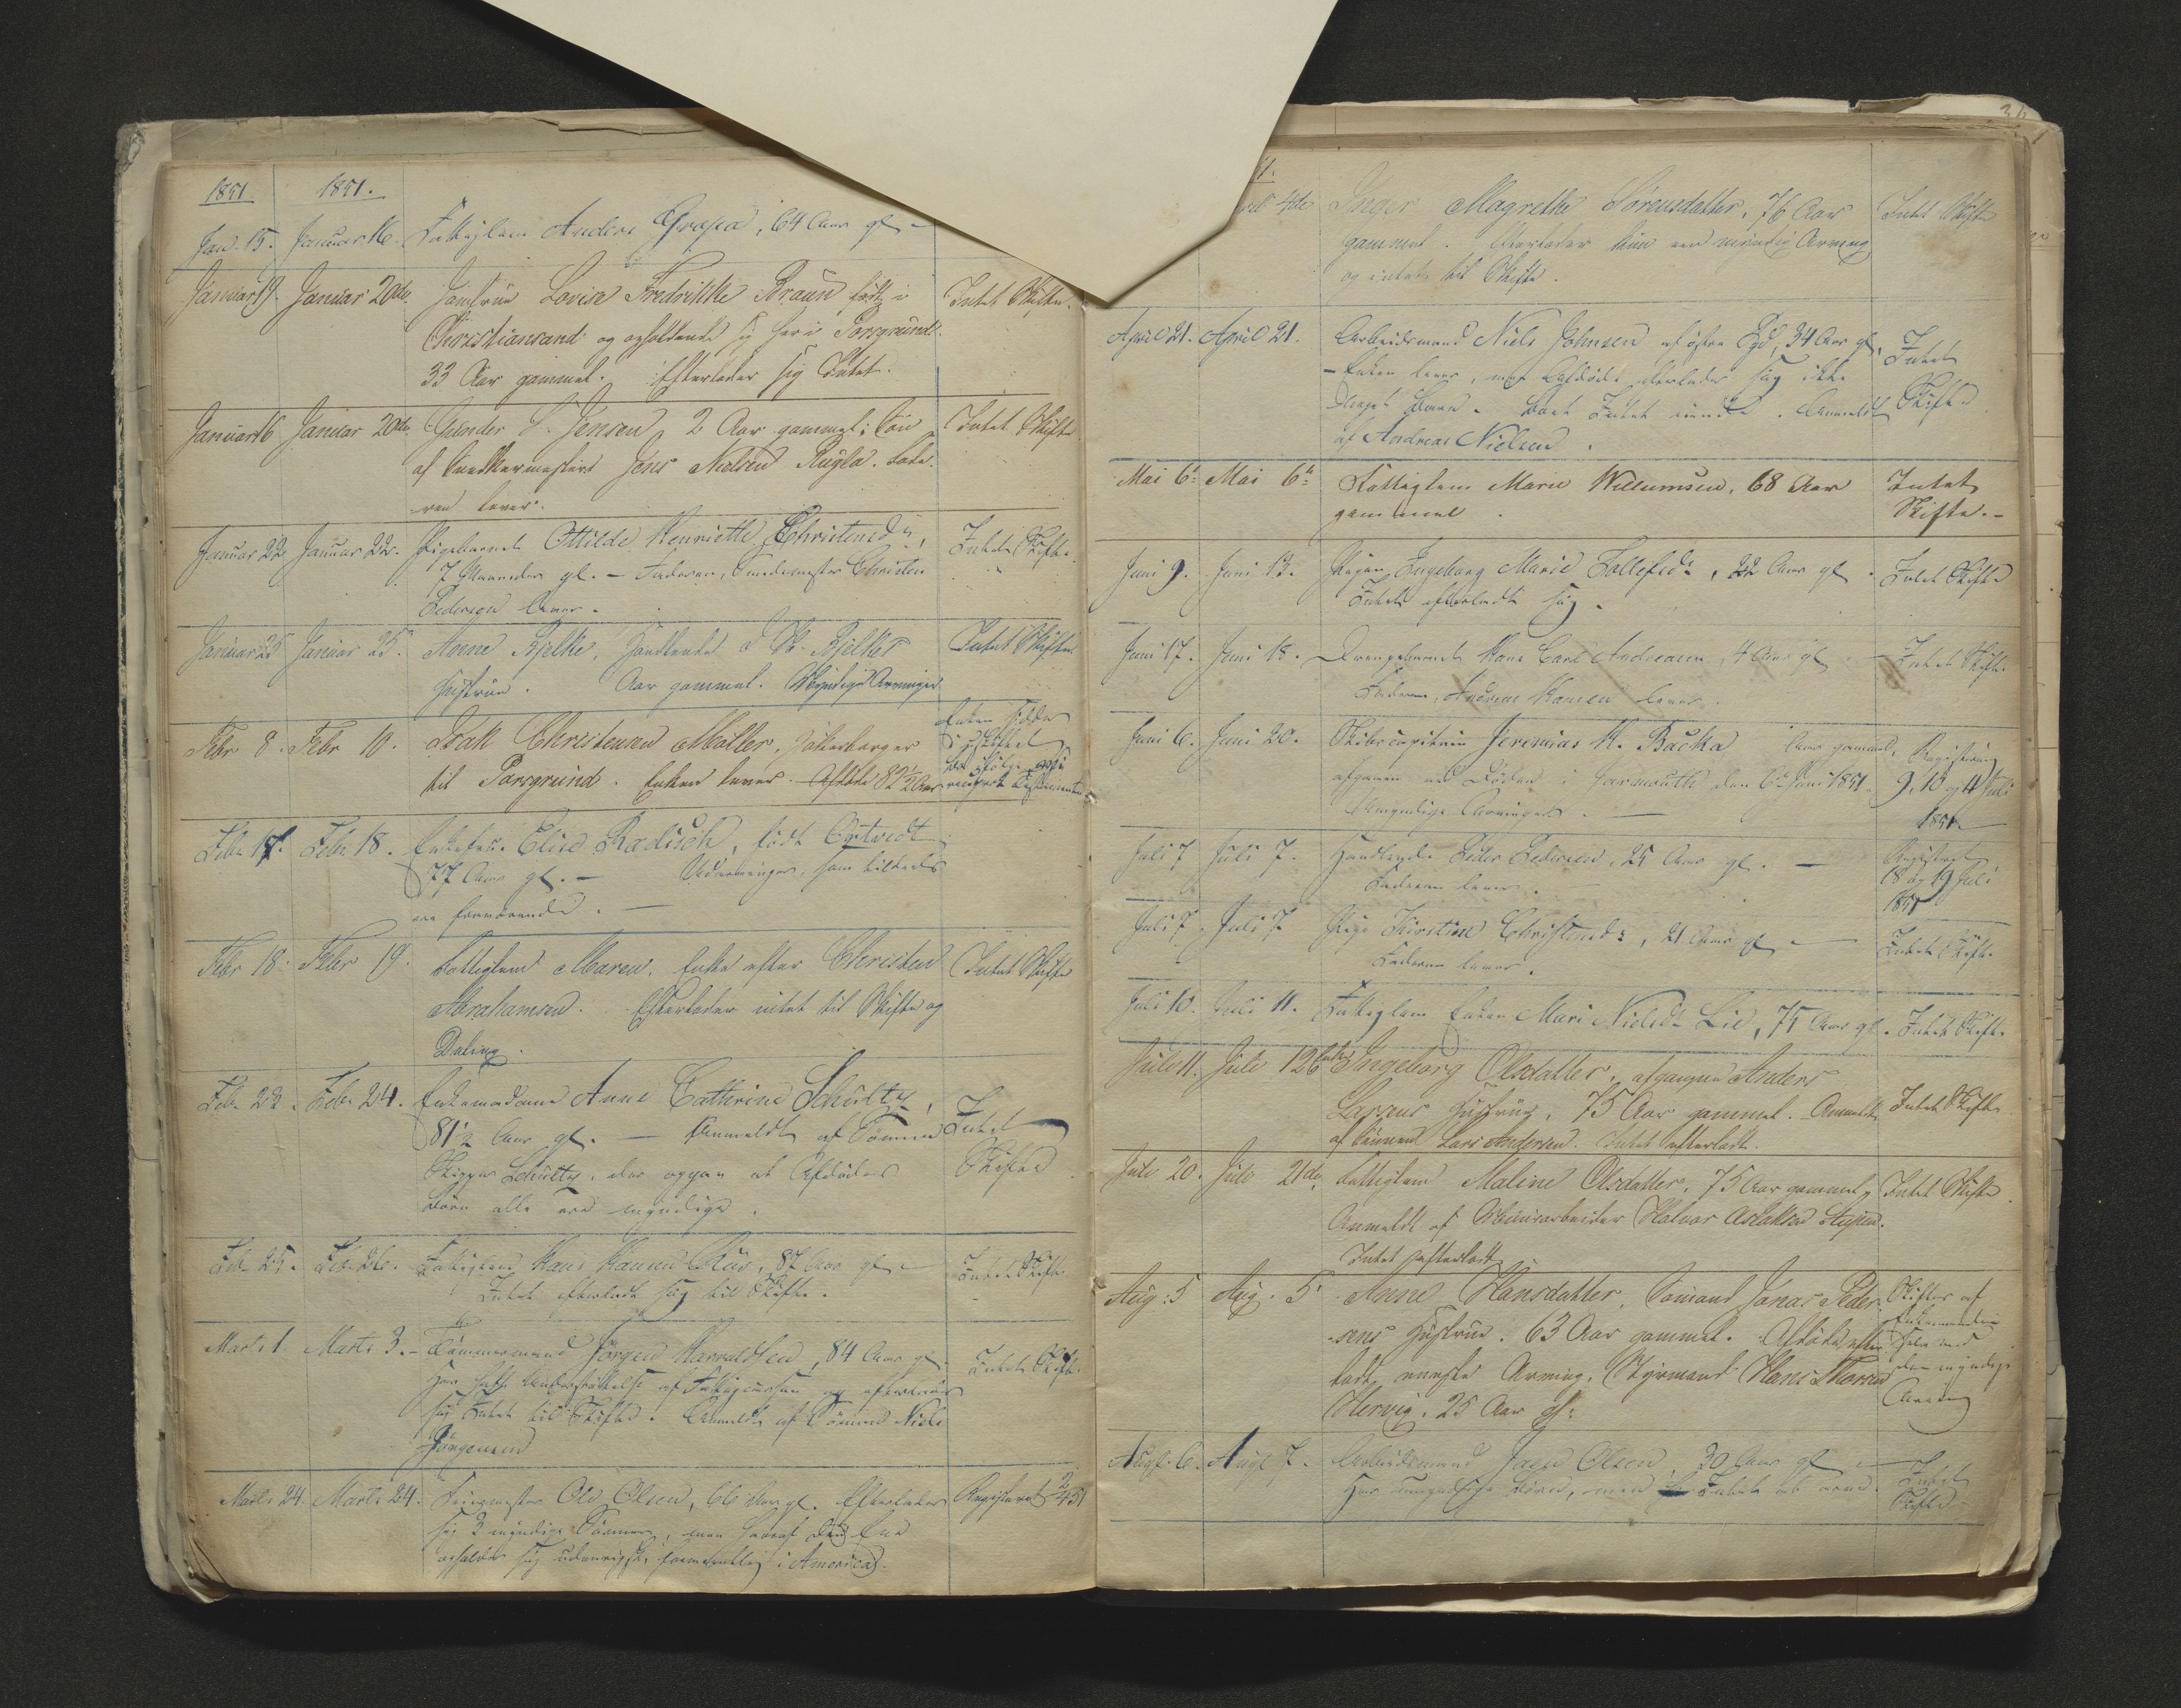 1851. 1851.
Jan. 15. Januar 16. Fattiglem Anders Grapa, 64 Aar gl –
Januar 19. Januar 20de. Jomfrue Lovise Fredrikke Braun født i Intet Skifte.
Christiansand og opholdende sig her i Porsgrund.
33 Aar gammel. Efterlader sig Intet.
Januar 16 Januar 20de. Jensen, 2 Aar gammel; Søn Intet Skifte
af Snedkermester Jens Nielsen Rugla. Fade-
ren lever.
Januar 22 Januar 22. Pigebarnet Ottilde Henriette Christensd:, Intet Skifte.
7 Maaneder gl. – Faderen, Smedemester Christen
Pedersen lever.
Januar 25 Januar 25. Anne Bjelke, Handlende Bjelkes Intet Skifte
Hustrue. Aar gammel. Myndige Arvinger
Febr 8. Febr 10. Isak Christensen Møller, Enken sidder
til Porsgrund. Enken lever. Afdøde 82½ Aar
Febr. 17. Febr. 18. Enkefru Elise Radisch, født Ørtvedt
77 Aar gl. – Udarvinger, som tildels
ere fraværende. –
Febr 18. Febr 19. Fattiglem Maren, Enke efter Christen Intet Skifte
Abrahamsen. Efterlader intet til Skifte og
Deling.
Feb. 22. Febr. 24. Enkemadame Anne Cathrine Schultz, Intet
81½ Aar gl. – Anmeldt af Sønnen Skifte
Skipper Schultz, der opgav at Afdødes
Børn alle ere myndige.
Feb. 25. Feb. 26. Fattiglem Hans Hansen, 87 Aar gl – Intet Skifte.
Intet efterladt sig til Skifte.
Marts 1. Marts 3. – Tømmermand Jørgen Harraldsen, 84 Aar gl. Intet Skifte.
har havt Understøttelse af Fattigcassen og efterlader
sig Intet til Skifte. Anmeldt af Sønnen Niels
Jørgensen
Marts 24. Marts 24. Ole Olsen, 66 Aar gl. Efterlader Registeret 2/4 51
sig 3 myndige Sønner, men hvoraf den Ene
opholder sig udenrigs, formentlig i America.
4de Inger Magrethe Sørensdatter, 76 Aar Intet Skifte
gammel. Efterlader kun een myndig Arving
og intet til Skifte.
April 21. April 21. Arbeidsmand Niels Johnsen af østre Pgd, 34 Aar gl. Intet
– Enken lever, men Afdøde efterlader sig ikke Skifte
noget Barn. Anmeldt
af Andreas Nielsen.
Mai 6. Mai 6. Fattiglem Marie Willumsen, 68 Aar Intet
gammel. Skifte. –
Juni 9. Juni 13. Pigen Ingeborg Marie Tollefsd:, 22 Aar gl. Intet Skifte
Intet efterladt sig.
Juni 17. Juni 18. Drengebarnet Hans Carl Andreasen, 4 Aar gl – Intet Skifte.
Faderen, Andreas Hansen lever.
Juni 6. Juni 20. Skibscapitain Jeremias H. Backa Aar gammel, Registrering
afgaaen ved Døden i Yarmouth den 6te Juni 1851. 9, 10 og 11 Juli
Umyndige Arvinger. – 1851.
Juli 7 Juli 7. Handlende Peder Pedersen, 25 Aar gl. – Registeret
Faderen lever. 18 og 19 Juli
1851
Juli 7. Juli 7. Pige Kirstine Christensd:, 21 Aar gl – Intet Skifte.
Faderen lever.
Juli 10. Juli 11. Fattiglem Enken Mari Nielsd: Lie, 75 Aar gl. Intet Skifte.
Juli 11. Juli 12 Enken Ingeborg Olsdatter, afgangne Anders
Larsens Hustrue, 75 Aar gammel. Anmeldt Intet Skifte
af Sønnen Lars Andersen. Intet efterladt.
Juli 20. Juli 21de. Fattiglem Maline Olsdatter, 75 Aar gammel, Intet Skifte.
Anmeldt af Halvor Aslaksen
Intet efterladt
Aug. 5 Aug. 5. Anne Hansdatter, Sømand Jonas Peder- Skifter af
sens Hustrue. 63 Aar gammel. Afdøde efter- Enkemanden
ladt eneste Arving, Styrmand Hans Thorsen selv med
Hervig, 25 Aar gl: den myndige
Arving
Augt. 6. Augt. 7. Arbeidsmand Olsen 30 Aar gl – Intet
Har umyndige Børn, men Intet at arve. Skifte